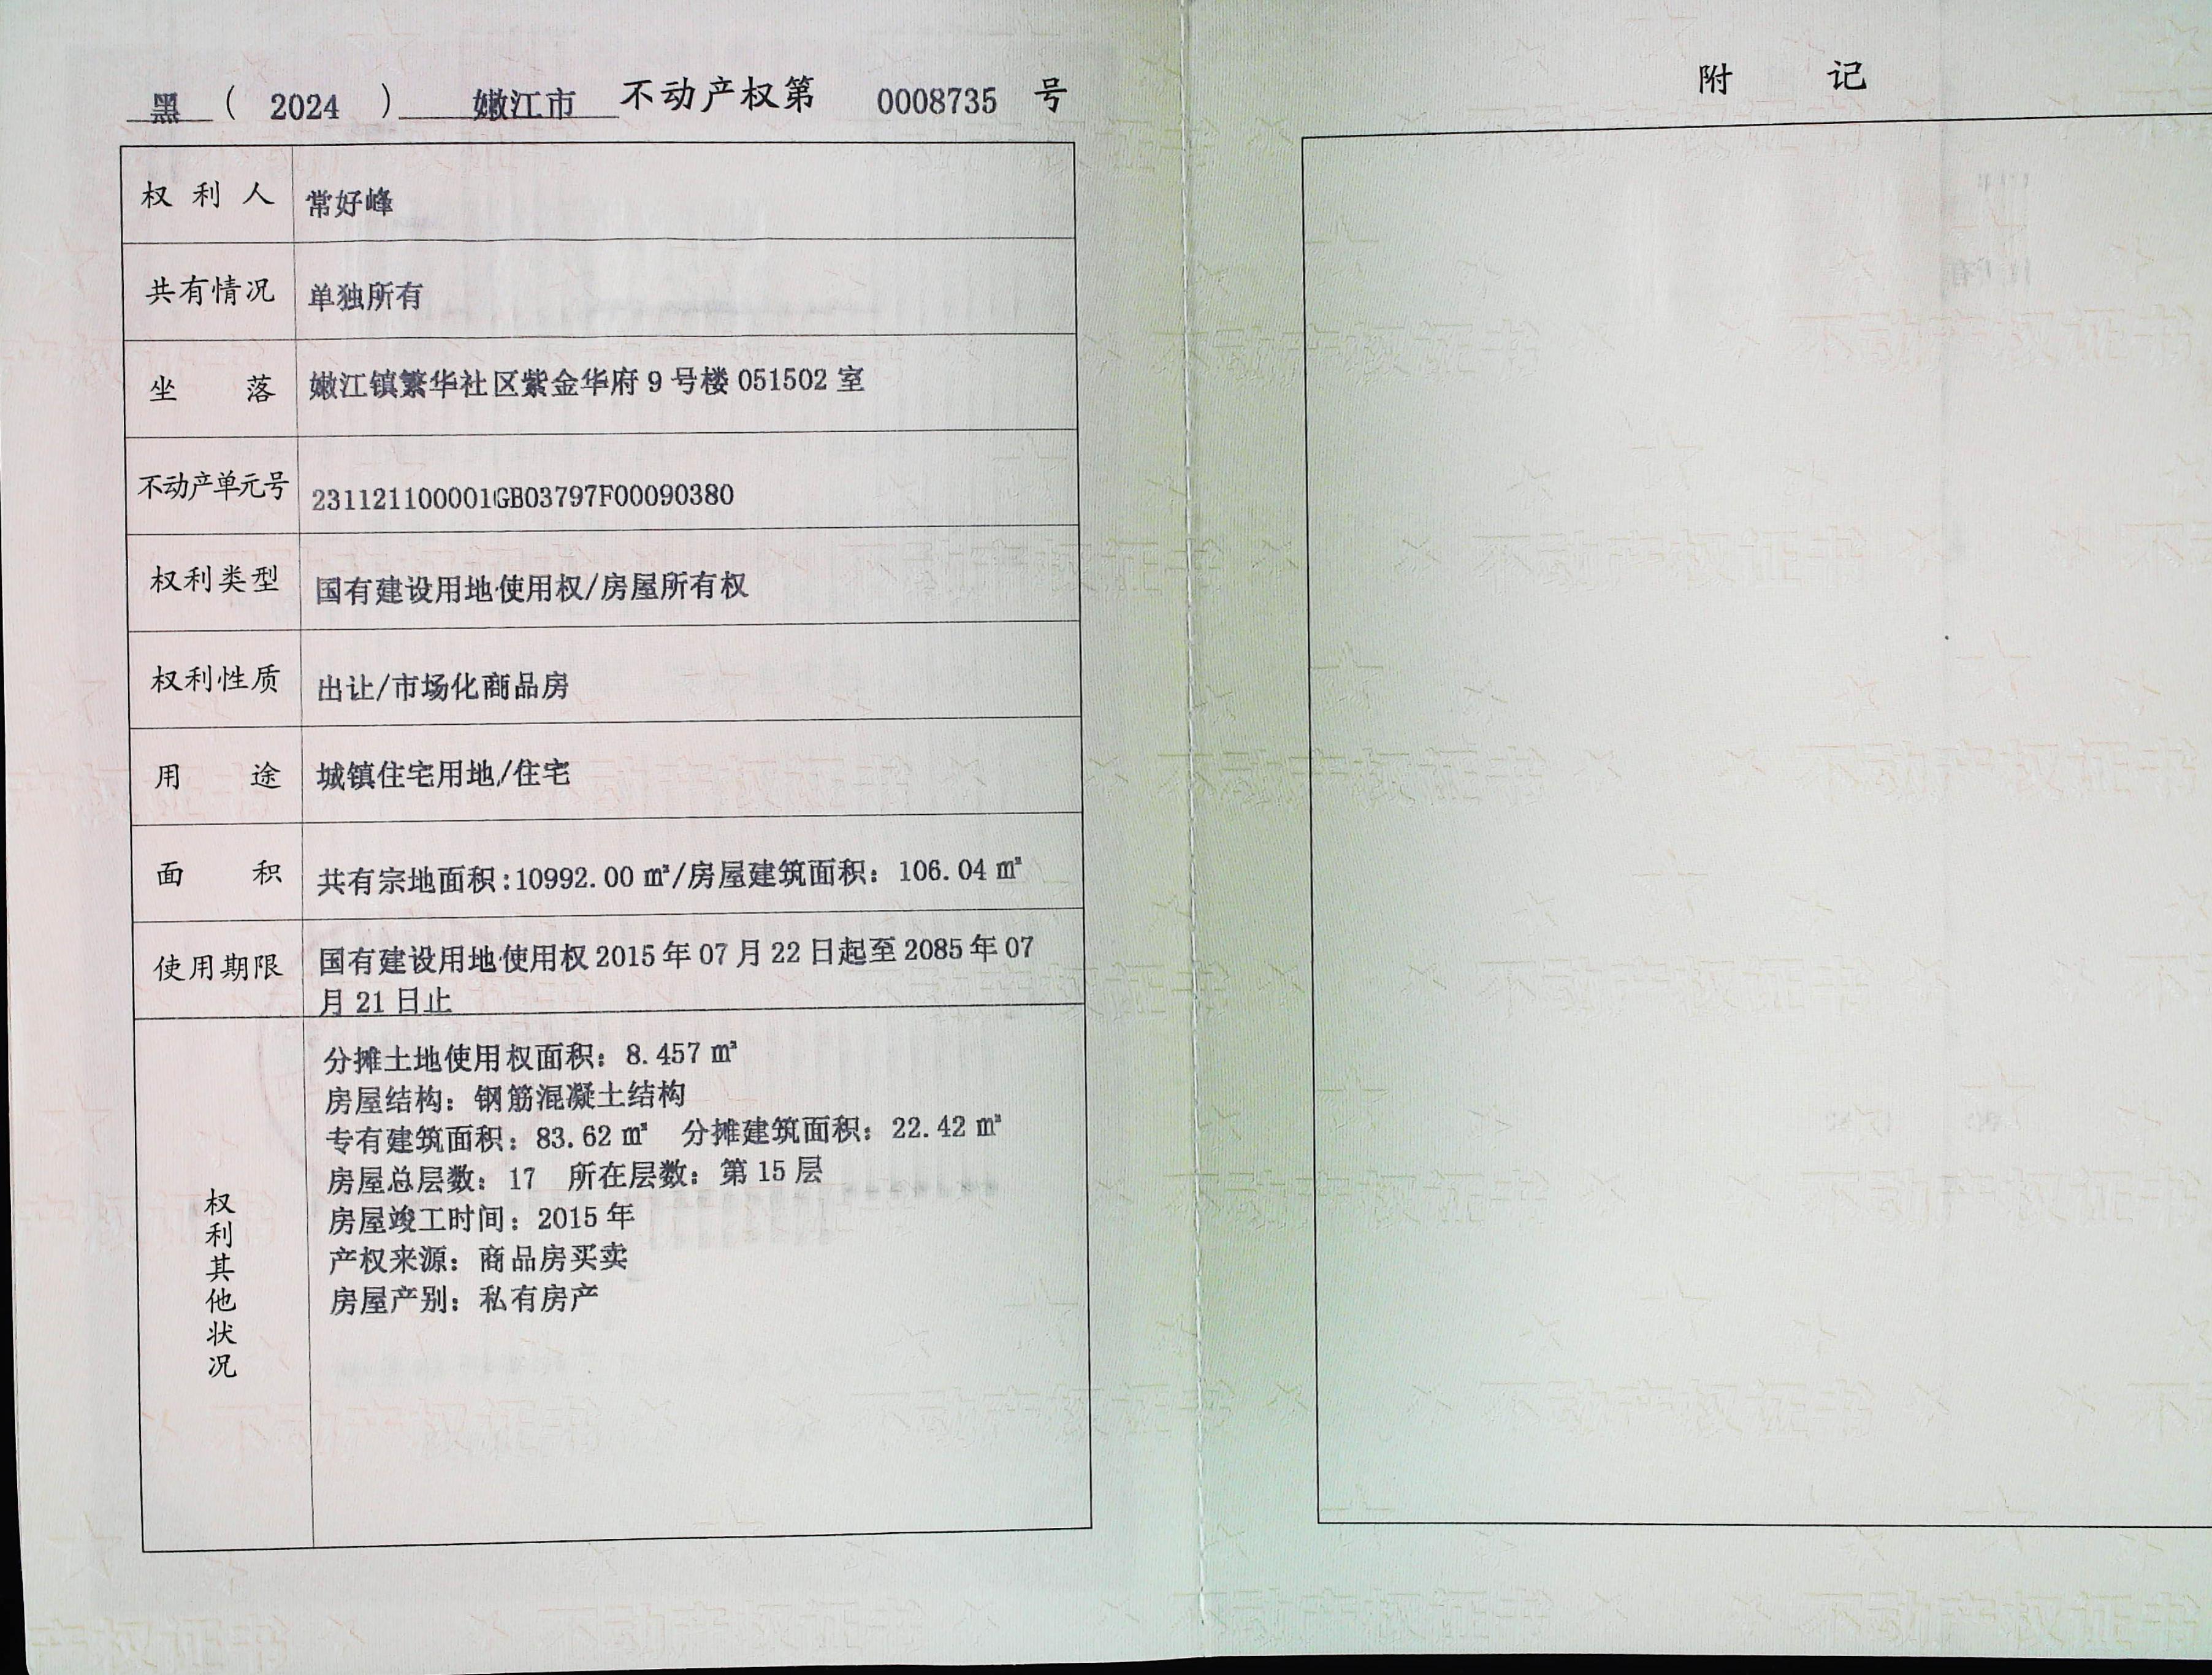 黑 ( 2024 ) 嫩江市 不动产权第 0008735 号
权利人 常好峰
共有情况 单独所有
坐落 嫩江镇繁华社区紫金华府 9 号楼 051502 室
不动产单元号 231121100001GB03797F00090380
权利类型 国有建设用地使用权/房屋所有权
权利性质 出让/市场化商品房
用途 城镇住宅用地/住宅
面积 共有宗地面积:10992.00 ㎡/房屋建筑面积: 106.04 ㎡
使用期限 国有建设用地使用权 2015 年 07 月 22 日起至 2085 年 07
月 21 日止
权利其他状况
分摊土地使用权面积: 8.457 ㎡
房屋结构: 钢筋混凝土结构
专有建筑面积: 83.62 ㎡ 分摊建筑面积: 22.42 ㎡
房屋总层数: 17 所在层数: 第 15 层
房屋竣工时间: 2015 年
产权来源: 商品房买卖
房屋产别: 私有房产
附 记